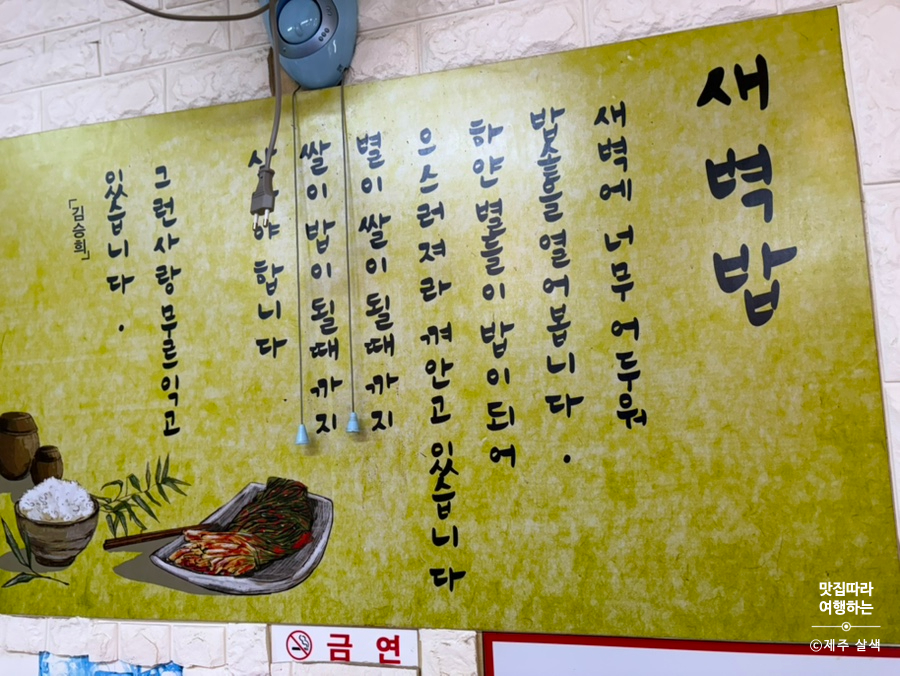 새벽밥
새벽에 너무 어두워
밥솥을 열어봅니다.
하얀 별들이 밥이 되어
으스러져라 껴안고 있습니다
별이 쌀이 될때까지
쌀이 밥이 될때까지
합니다
그런사랑 무르익고
있습니다.
「김승희」
금연
맛집따라
여행하는
©제주 살색